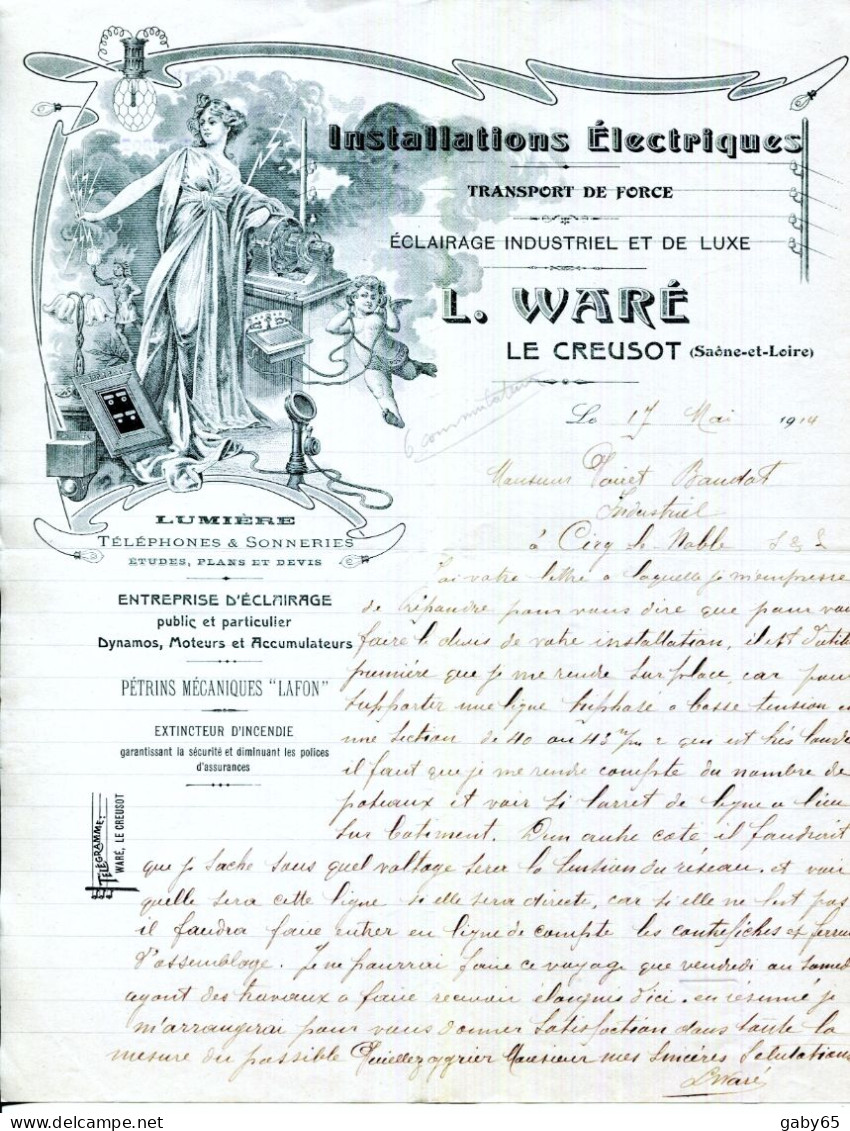 Installations Électriques
TRANSPORT DE FORCE
ÉCLAIRAGE INDUSTRIEL ET DE LUXE
L. WARÉ
LE CREUSOT (Saône-et-Loire)
6 commutateurs
Le 17 Mai 1914
Monsieur Baudot
Industriel
à Ciry le Noble S & L
LUMIÈRE
TÉLÉPHONES & SONNERIES
ÉTUDES, PLANS ET DEVIS
ENTREPRISE D'ÉCLAIRAGE
public et particulier
Dynamos, Moteurs et Accumulateurs
PÉTRINS MÉCANIQUES "LAFON"
EXTINCTEUR D'INCENDIE
garantissant la sécurité et diminuant les polices
d'assurances
TÉLÉGRAMME:
WARÉ, LE CREUSOT
J'ai votre lettre a laquelle je m'empresse
de répondre pour vous dire que pour vou
faire le devis de votre installation, il est d'utili
première que je me rende sur place, car pour
supporter une ligne triphase a basse tension
une section de 40 au 43 m/m 2 qui est très lourde
il faut que je me rende compte du nombre de
poteaux et voir si l'arret de ligne a lieu
sur batiment. D'un autre coté il faudrait
que je sache sous quel voltage sera la tension du réseau. et voir
quelle sera cette ligne si elle sera directe, car si elle ne l'est pas
il faudra faire entrer en ligne de compte les contrefiches et ferru
d'assemblage. Je ne pourrai faire ce voyage que vendredi au samed
ayant des travaux a faire recevoir éloignés d'ici. en résumé je
m'arrangerai pour vous donner satisfaction dans toute la
mesure du possible Veuillez agréer Monsieur mes sincères Salutations
L Waré
gaby65